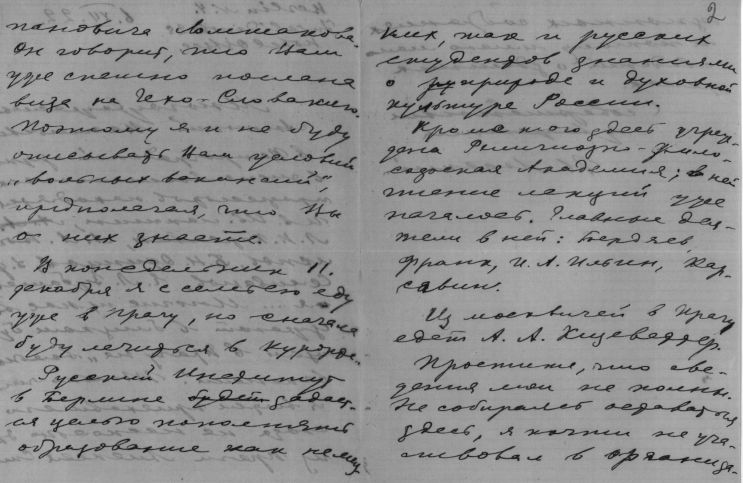 пановича Ломшакова.
Он говорит, что Вам
уже спешно послана
виза на Чехо-Словакию.
Поэтому я и не буду
описывать Вам условий
„вольных вакансий",
предполагая, что Вы
о них знаете.
В понедельник 11.
декабря я с семьею еду
уже в Прагу, но сначала
буду лечиться в курорте.
Русский Институт
в Берлине будет задает-
ся целью пополнять
образование как немец-
2
ких, так и русских
студентов знаниями
о природе и духовной
культуре России.
Кроме того здесь учреж-
дена Религиозно-Фило-
софская Академия; в ней
чтение лекций уже
началось. Главные дея-
тели в ней: Бердяев,
Франк, И. А. Ильин, Кар-
савин.
Из москвичей в Прагу
едет А. А. Кизеветтер.
Простите, что све-
дения мои не полны.
Не собираясь оставаться
здесь, я почти не уча-
ствовал в организа-